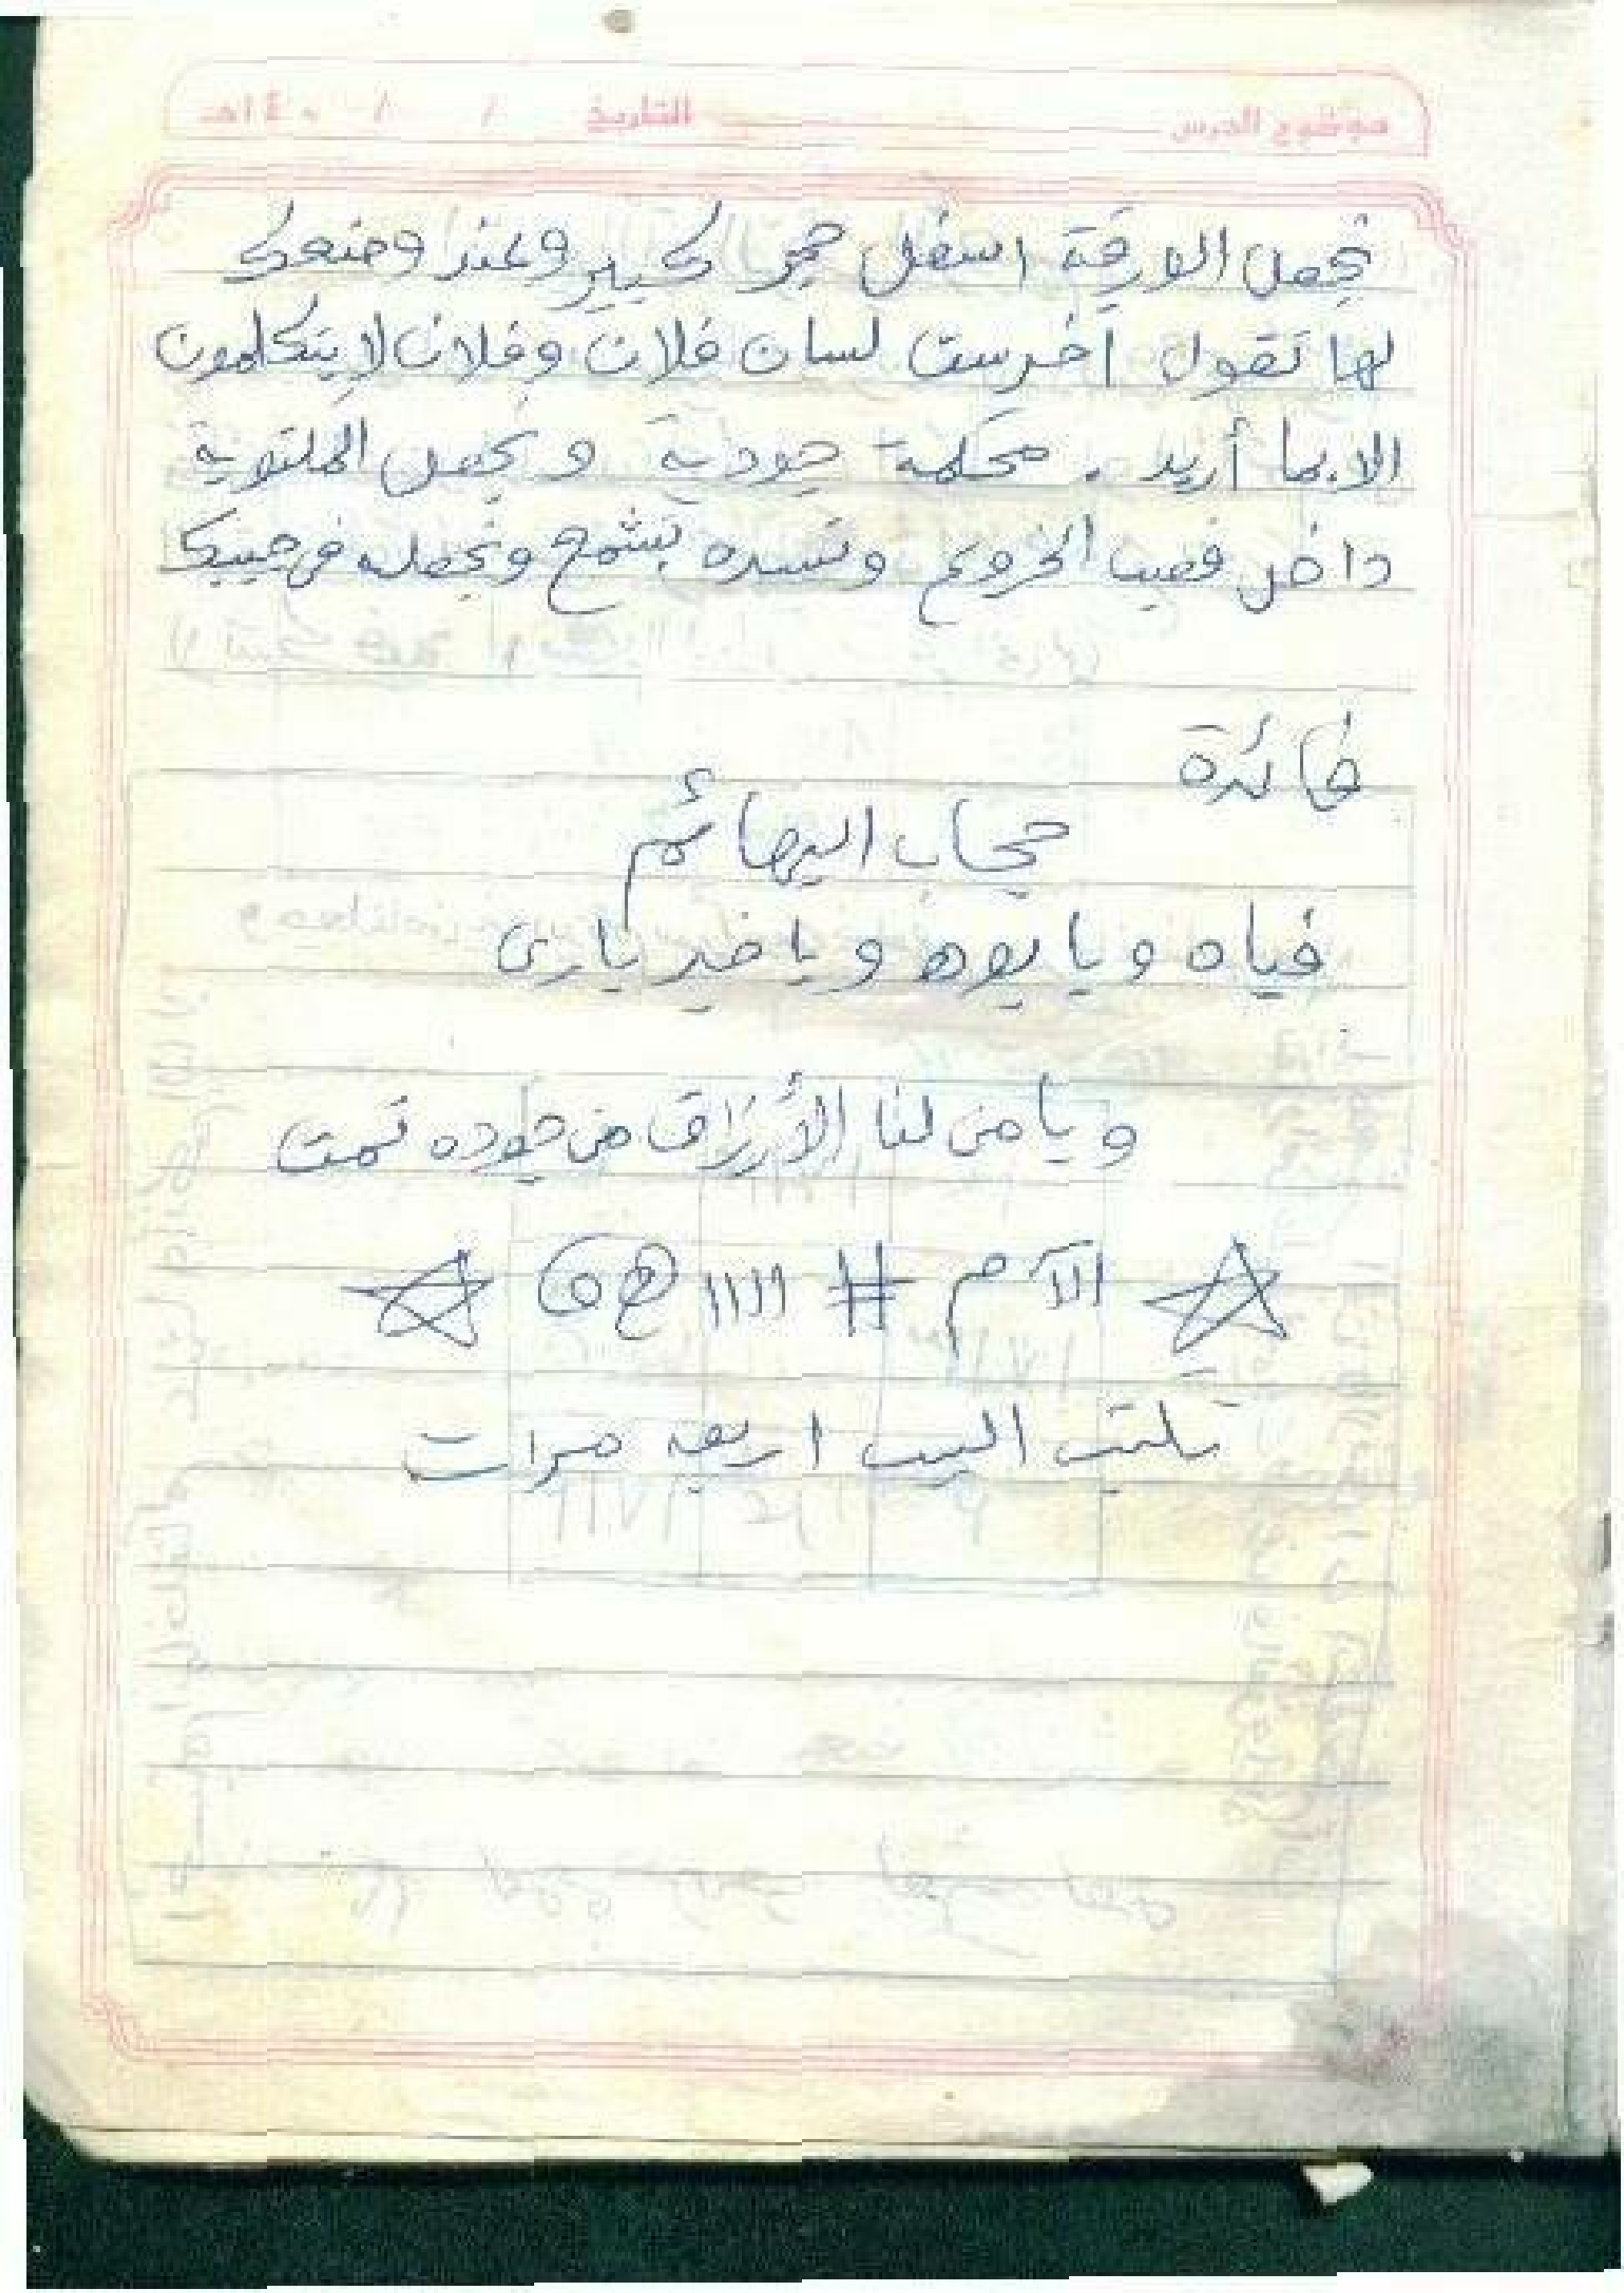 موضوع الدرس التاريخ / / ١٤٠هـ
تجعل الورقة اسفل حجر كبير وعند وضعك
لها تقول أخرست لسان فلان وفلان لا يتكلمون
الا بما أريد . محكمة جودية و تجعل الملتوية
داخل قصب الخروع وتسده بشمع وتجعله في جيبك
فائدة
حجاب البهائم
فياه ويا يوه و يا خير بارى
و يا من لنا الأرزاق من جوده تمت
الآم # ااااا ھ ه
تكتب البيت اربعه مرات